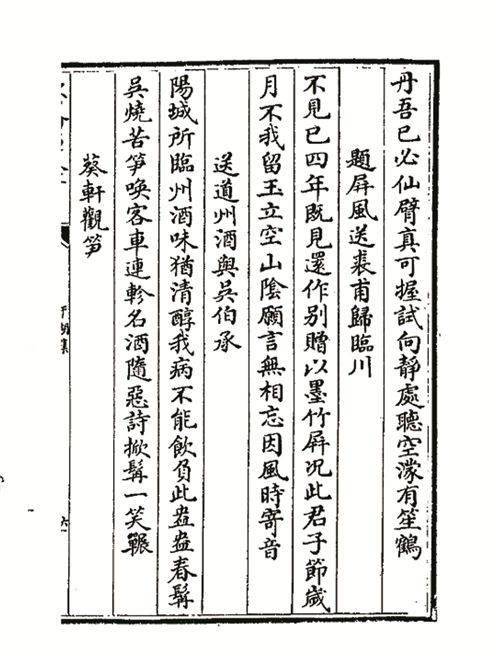 丹吾已必仙臂真可握試向靜處聽空濛有笙鶴
題屏風送裘甫歸臨川
不見已四年既見還作別贈以墨竹屏况此君子節歲
月不我留玉立空山陰願言無相忘因風時寄音
送道州酒與吳伯承
陽城所臨州酒味猶清醇我病不能飲負此盎盎春髯
吳燒苦笋喚客車連軫名酒隨惡詩掀髯一笑囅
葵軒觀笋
于湖集